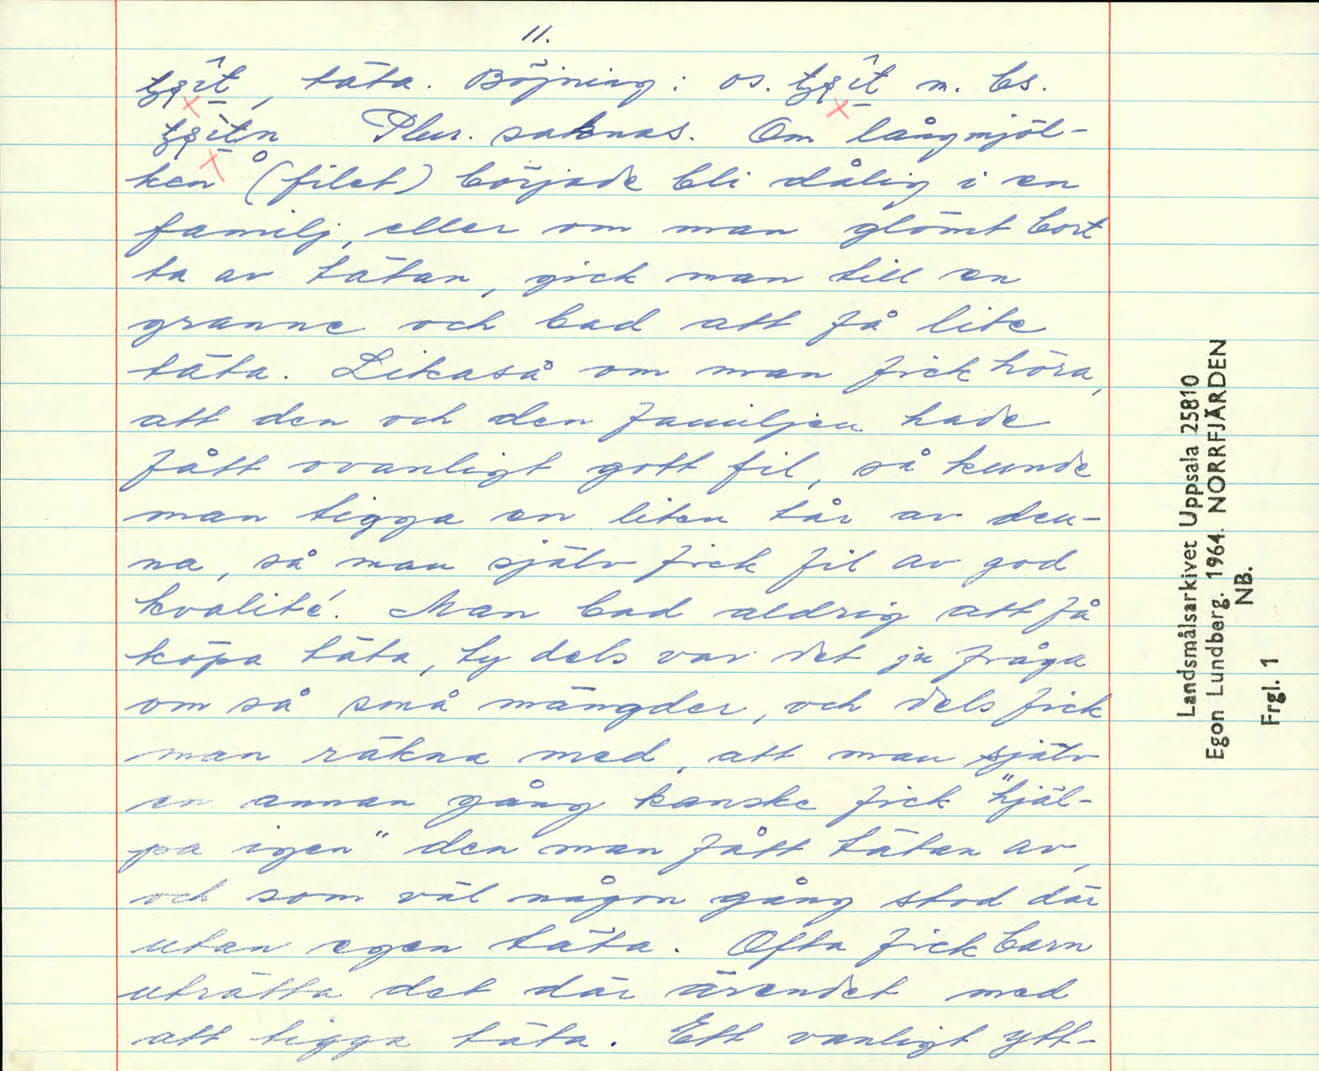 11.
täta. Böjning: os. m. bs.
Plur. saknas. Om långmjöl-
ken (filet) började bli dålig i en
familj, eller om man glömt bort
ta av tätan, gick man till en
granne och bad att få lite
täta. Likaså om man fick höra,
att den och den familjen hade
fått ovanligt gott fil, så kunde
man tigga en liten tår av den-
na, så man själv fick fil av god
kvalité. Man bad aldrig att få
köpa täta, ty dels var det ju fråga
om så små mängder, och dels fick
man räkna med, att man själv
en annan gång kanske fick "hjäl-
pa igen" den man fått tätan av,
och som väl någon gång stod där
utan egen täta. Ofta fick barn
uträtta det där ärendet med
att tigga täta. Ett vanligt ytt-
Landsmålsarkivet Uppsala 25810
Egon Lundberg. 1964. NORRFJÄRDEN
NB.
Frgl. 1